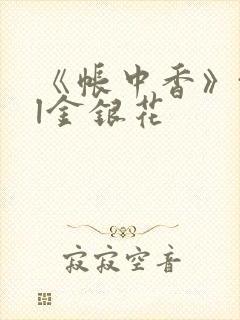 《帐中香》
|金银花
寂寂空音